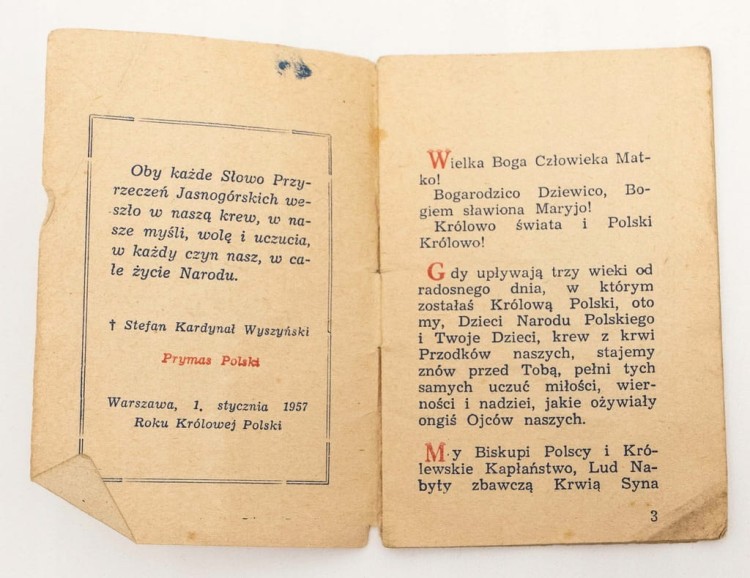 Oby każde Słowo Przy-
rzeczeń Jasnogórskich we-
szło w naszą krew, w na-
sze myśli, wolę i uczucia,
w każdy czyn nasz, w ca-
łe życie Narodu.
† Stefan Kardynał Wyszyński
Prymas Polski
Warszawa, 1. stycznia 1957
Roku Królowej Polski
Wielka Boga Człowieka Mat-
ko!
Bogarodzico Dziewico, Bo-
giem sławiona Maryjo!
Królowo świata i Polski
Królowo!
Gdy upływają trzy wieki od
radosnego dnia, w którym
zostałaś Królową Polski, oto
my, Dzieci Narodu Polskiego
i Twoje Dzieci, krew z krwi
Przodków naszych, stajemy
znów przed Tobą, pełni tych
samych uczuć miłości, wier-
ności i nadziei, jakie ożywiały
ongiś Ojców naszych.
My Biskupi Polscy i Kró-
lewskie Kapłaństwo, Lud Na-
byty zbawczą Krwią Syna
3